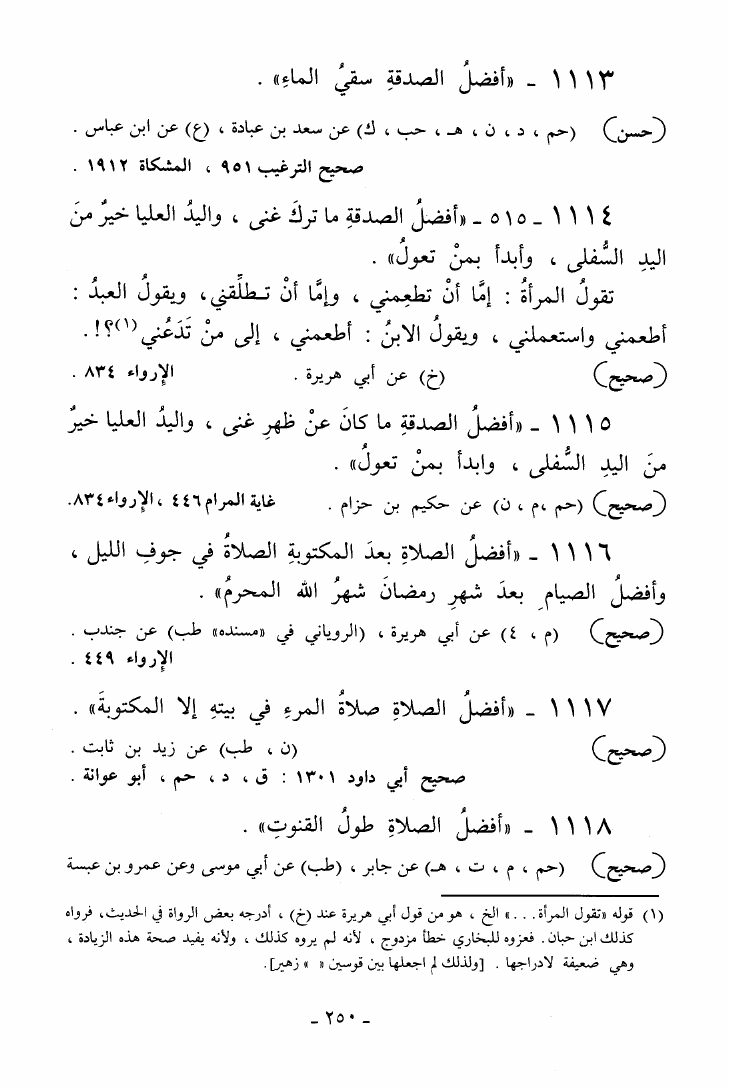 ١١١٣ ـ «أفضلُ الصدقةِ سقيُ الماءِ» .
(حسن) (حم ، د ، ن ، هـ ، حب ، ك) عن سعد بن عبادة ، (ع) عن ابن عباس .
صحيح الترغيب ٩٥١ ، المشكاة ١٩١٢ .
١١١٤ ـ ٥١٥ ـ «أفضلُ الصدقةِ ما تركَ غنى ، واليدُ العليا خيرٌ منَ
اليدِ السُّفلى ، وأبدأ بمنْ تعولُ» .
تقولُ المرأةُ : إمَّا أنْ تطعِمني ، وإمَّا أنْ تـطلِّقني، ويقولُ العبدُ :
أطعمني واستعملني ، ويقولُ الابنُ : أطعمني ، إلى منْ تَدَعُني(١)؟!.
(صحيح) (خ) عن أبي هريرة . الإرواء ٨٣٤ .
١١١٥ ـ «أفضلُ الصدقةِ ما كانَ عنْ ظهرِ غنى ، واليدُ العليا خيرٌ
منَ اليدِ السُّفلى ، وابدأ بمنْ تعولُ» .
(صحيح) (حم ،م ، ن) عن حكيم بن حزام . غاية المرام ٤٤٦ ،الإرواء٨٣٤.
١١١٦ ـ «أفضلُ الصلاةِ بعدَ المكتوبةِ الصلاةُ في جوفِ الليل ،
وأفضلُ الصيامِ بعدَ شهرِ رمضانَ شهرُ الله المحرمُ» .
(صحيح) (م ، ٤) عن أبي هريرة ، (الروياني في «مسنده» طب) عن جندب .
الإرواء ٤٤٩ .
١١١٧ ـ «أفضلُ الصلاةِ صلاةُ المرءِ في بيتهِ إلا المكتوبةَ» .
(صحيح) (ن ، طب) عن زيد بن ثابت .
صحيح أبي داود ١٣٠١ : ق ، د ، حم ، أبو عوانة .
١١١٨ ـ «أفضلُ الصلاةِ طولُ القنوتِ» .
(صحيح) (حم ، م ، ت ، هـ) عن جابر ، (طب) عن أبي موسى وعن عمرو بن عبسة
(١) قوله «تقول المرأة . . .» الخ ، هو من قول أبي هريرة عند (خ) ، أدرجه بعض الرواة في الحديث، فرواه
كذلك ابن حبان. فعزوه للبخاري خطأ مزدوج ، لأنه لم يروه كذلك ، ولأنه يفيد صحة هذه الزيادة ،
وهي ضعيفة لادراجها . [ولذلك لم اجعلها بين قوسين « » زهير].
ـ ٢٥٠ ـ